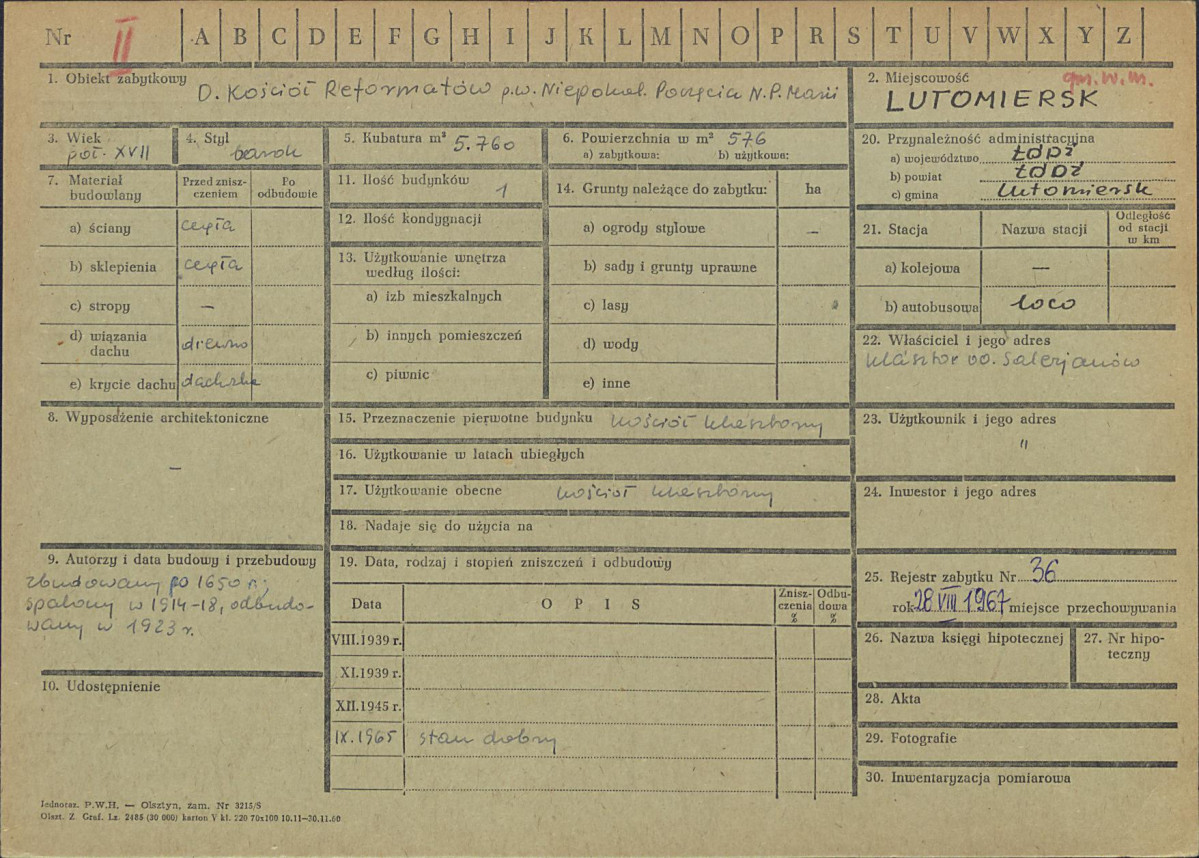 Nr II A B C D E F G H I J K L M N O P R S T U V W X Y Z
1. Obiekt zabytkowy D. Kościół Reformatów p.w. Niepokal. Poczęcia N.P. Marii
2. Miejscowość gm. w. m.
LUTOMIERSK
3. Wiek
poł. XVII
4. Styl
barok
5. Kubatura m³ 5.760
6. Powierzchnia w m² 576
a) zabytkowa: b) użytkowa:
20. Przynależność administracyjna
a) województwo ŁÓDŹ
b) powiat ŁÓDŹ
c) gmina Lutomiersk
7. Materiał budowlany
Przed znisz-
czeniem
Po
odbudowie
a) ściany cegła
b) sklepienia cegła
c) stropy —
d) wiązania
dachu drewno
e) krycie dachu
11. Ilość budynków 1
12. Ilość kondygnacji
13. Użytkowanie wnętrza
według ilości:
a) izb mieszkalnych
b) innych pomieszczeń
c) piwnic
14. Grunty należące do zabytku: ha
a) ogrody stylowe —
b) sady i grunty uprawne
c) lasy
d) wody
e) inne
21. Stacja Nazwa stacji
Odległość
od stacji
w km
a) kolejowa —
b) autobusowa loco
22. Właściciel i jego adres
klasztor oo. Salezjanów
8. Wyposażenie architektoniczne
—
15. Przeznaczenie pierwotne budynku kościół klasztorny
16. Użytkowanie w latach ubiegłych
17. Użytkowanie obecne kościół klasztorny
18. Nadaje się do użycia na
23. Użytkownik i jego adres
"
24. Inwestor i jego adres
9. Autorzy i data budowy i przebudowy
zbudowany po 1650 r.;
spalony w 1914-18, odbudo-
wany w 1923 r.
10. Udostępnienie
19. Data, rodzaj i stopień zniszczeń i odbudowy
Data OPIS
Znisz-
czenia
%
Odbu-
dowa
%
VIII.1939 r.
XI.1939 r.
XII.1945 r.
IX.1965 stan dobry
25. Rejestr zabytku Nr 36
rok 28 VIII 1967 miejsce przechowywania
26. Nazwa księgi hipotecznej
27. Nr hipo-
teczny
28. Akta
29. Fotografie
30. Inwentaryzacja pomiarowa
Jednoraz. P.W.H. — Olsztyn, zam. Nr 3215/S
Olszt. Z. Graf. Lz. 2485 (30 000) karton V kl. 220 70x100 10.11—30.11.60